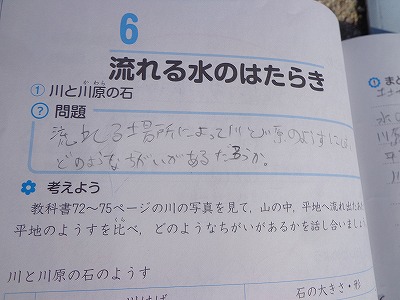 6
流れる水のはたらき
① 川と川原の石
かわら
? 問題
流れる場所によって川と川原のようすには、
どのようなちがいがあるだろうか。
考えよう
教科書72〜75ページの川の写真を見て，山の中，平地へ流れ出たあ
平地のようすを比べ，どのようなちがいがあるかを話し合いましょ
くら
川と川原の石のようす
川はば
石の大きさ・形
① まと